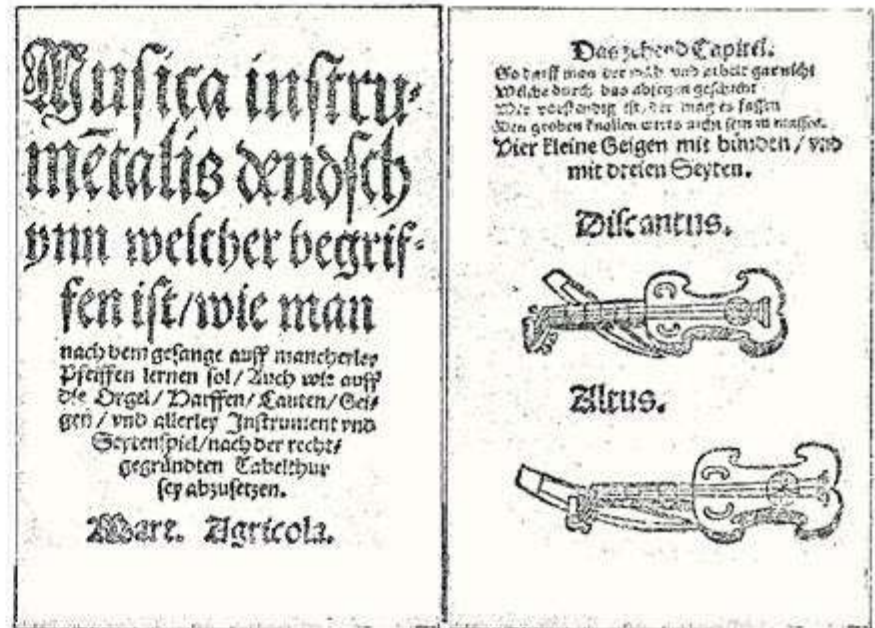 Musica instru-
mētalis deudsch
ynn welcher begrif-
fen ist/wie man
nach dem gesange auff mancherley
Pfeiffen lernen sol/ Auch wie auff
die Orgel/ Harffen/ Lauten/ Gei-
gen/ vnd allerley Instrument vnd
Seytenspiel/nach der recht-
gegründten Tabelthur
sey abzusetzen.
Mart. Agricola.
Das zehend Capitel.
So darff man der müh vnd arbeit gar nicht
Welche durch das absetzen geschicht
Wer vorstendig ist, der mag es fassen
Den groben knollen
Vier kleine Geigen mit bünden/ vnd
mit dreien Seyten.
Discantus.
Altus.